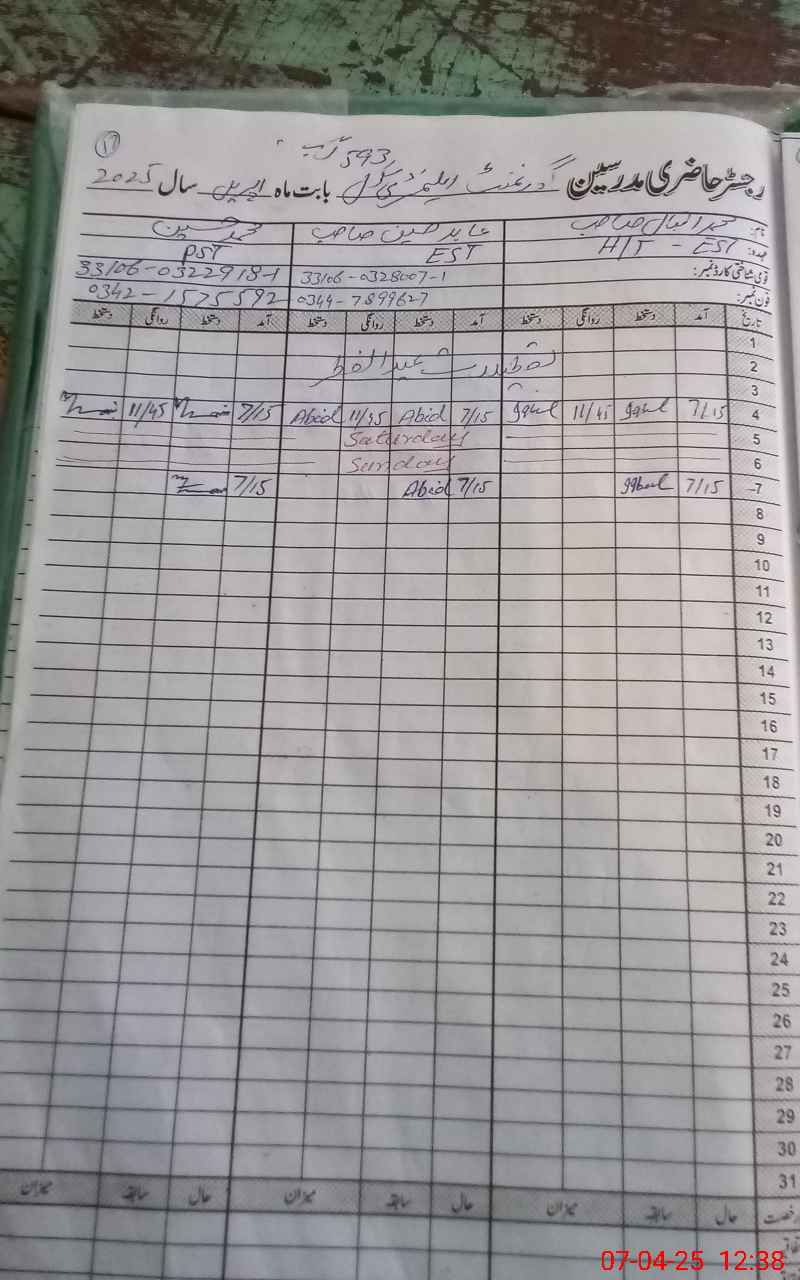 ۱۷
593 گ ب
رجسٹر حاضری مدرسین گورنمنٹ ایلیمنٹری سکول بابت ماہ اپریل سال 2025
نام: محمد اقبال صاحب عابد حسین صاحب محمد حسین
عہدہ: H/T - EST EST PST
قومی شناختی کارڈ نمبر: 33106-0328007-1 33106-0322918-1
فون نمبر: 0349-7899627 0342-1575592
تاریخ آمد دستخط روانگی دستخط آمد دستخط روانگی دستخط آمد دستخط روانگی دستخط
1
2 تعطیلات عیدالفطر
3
4 7/15 Iqbal 11/45 Iqbal 7/15 Abid 11/45 Abid 7/15 11/45
5 Saturday
6 Sunday
7 7/15 Iqbal 7/15 Abid 7/15
8
9
10
11
12
13
14
15
16
17
18
19
20
21
22
23
24
25
26
27
28
29
30
31
رخصت حال سابقہ میزان حال سابقہ میزان حال سابقہ میزان
07-04-25 12:38